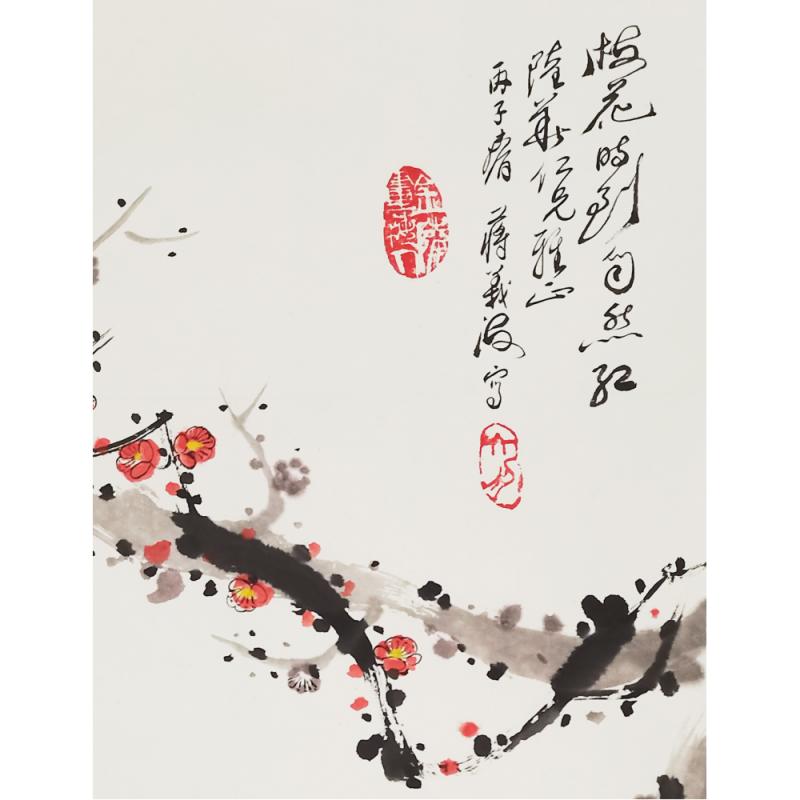 梅花时到自然红
陆华仁兄雅正
丙子春 蒋义海写